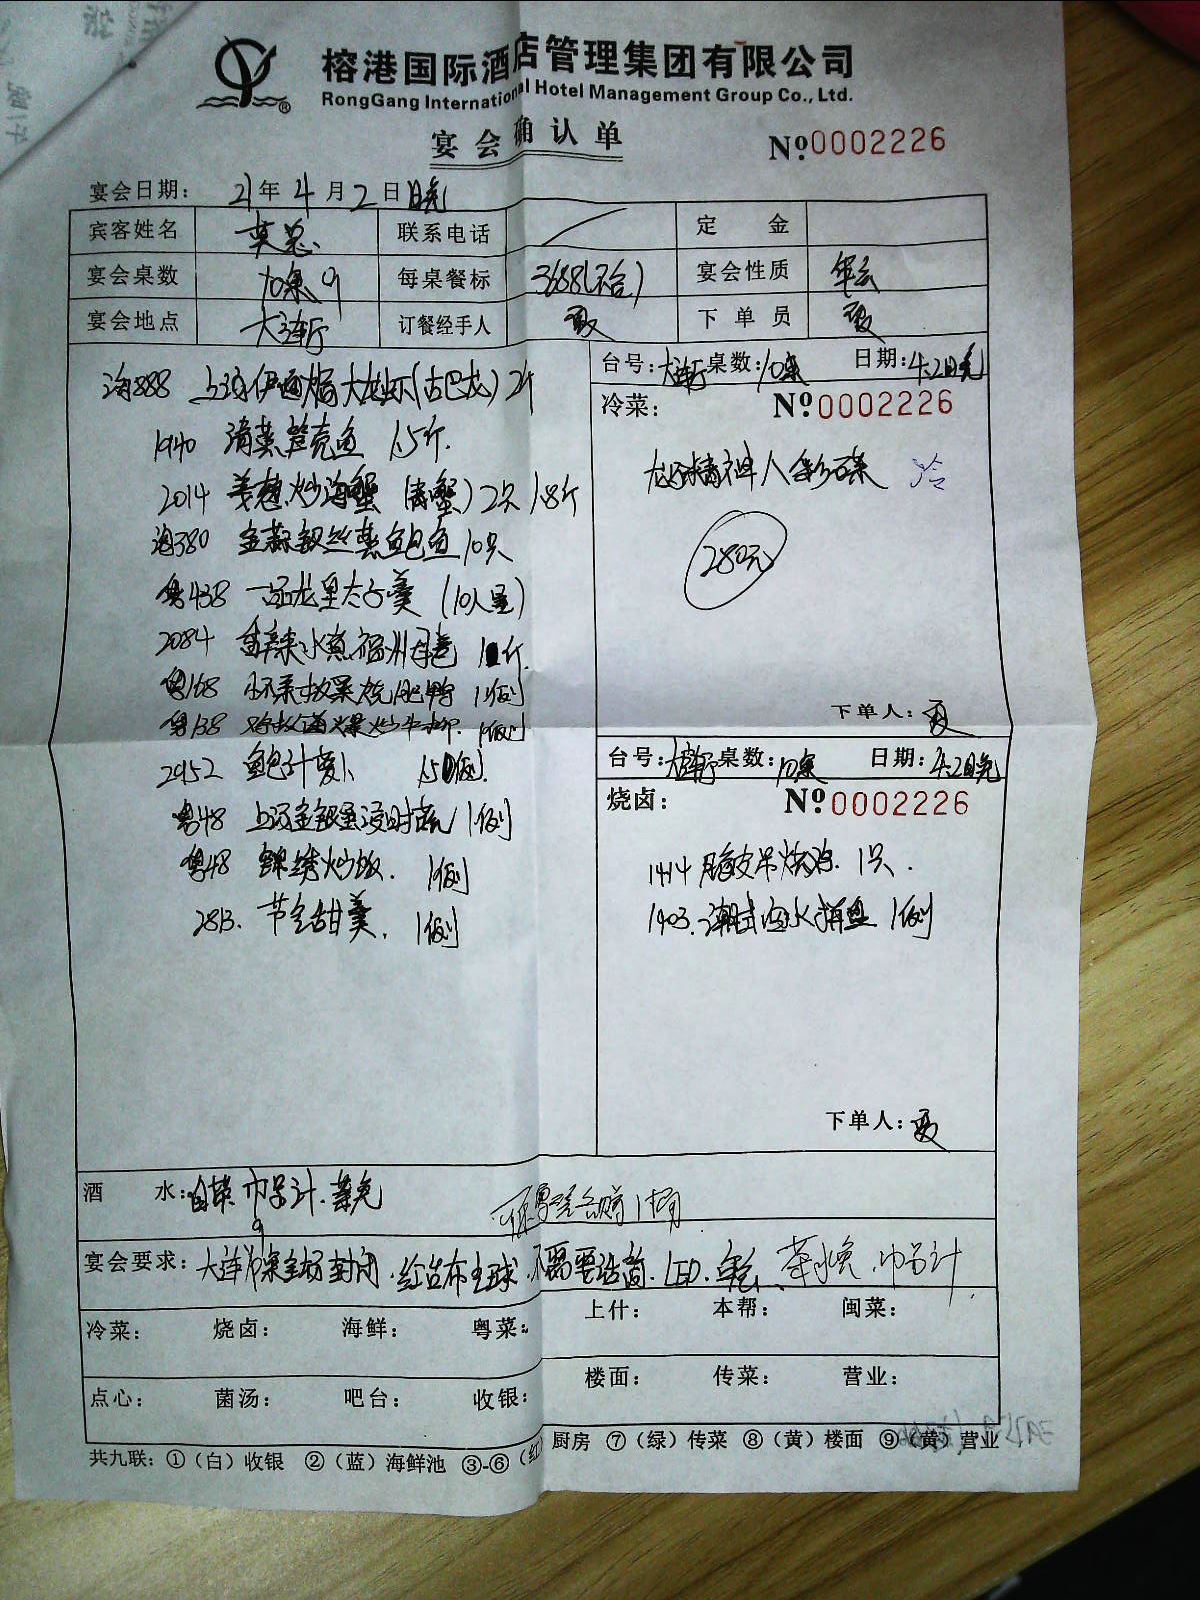 榕港国际酒店管理集团有限公司
RongGang International Hotel Management Group Co., Ltd.
宴会确认单
№0002226
宴会日期: 21年4月2日晚
宾客姓名 联系电话 定金
宴会桌数 10桌 每桌餐标 3688 宴会性质 年会
宴会地点 大连厅 订餐经手人 夏 下单员 夏
台号:大连厅 桌数:10桌 日期:4.2晚
冷菜: №0002226
龙虾精神人 冷
280元
下单人:夏
海888 上汤伊面焗大龙虾(古巴龙)2斤
1940 清蒸笋壳鱼 1.5斤.
2014 姜葱炒海蟹(青蟹)2只 1.8斤
海380 金蒜银丝蒸鲍鱼10只
粤438 一品龙皇太子羹(10人量)
2084 香辣水煮福州 斤
粤168 烧肥鸭 1例
粤138 爆炒牛柳. 1例
2952 鲍汁萝卜 1.5例.
粤48 上汤金银蛋浸时蔬 1例
粤48 锦绣炒饭. 1例
2813. 节令甜羹. 1例
台号:大连厅 桌数:10桌 日期:4.2晚
烧卤: №0002226
1414 脆皮吊烧鸡. 1只.
1903. 潮式卤水拼盘 1例
下单人:夏
酒水:自带 巾另计.茶免
宴会要求: 大连厅 桌全场封闭. 台布 .不需要 .LED.年会. 茶水免.巾另计
冷菜: 烧卤: 海鲜: 粤菜: 上什: 本帮: 闽菜:
点心: 菌汤: 吧台: 收银: 楼面: 传菜: 营业:
共九联:①(白)收银 ②(蓝)海鲜池 ③-⑥(红)厨房 ⑦(绿)传菜 ⑧(黄)楼面 ⑨(黄)营业